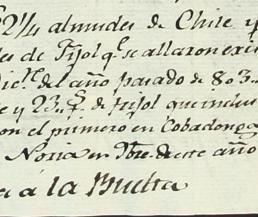 2¼ almudes de Chile y
les de Frijol q.e se allaron exis
Dic.e del año pasado de 803.
e y 23 de frijol que inclus
on el primero en Cobadonga
Noria en 9bre. de este año
a á la Buelta